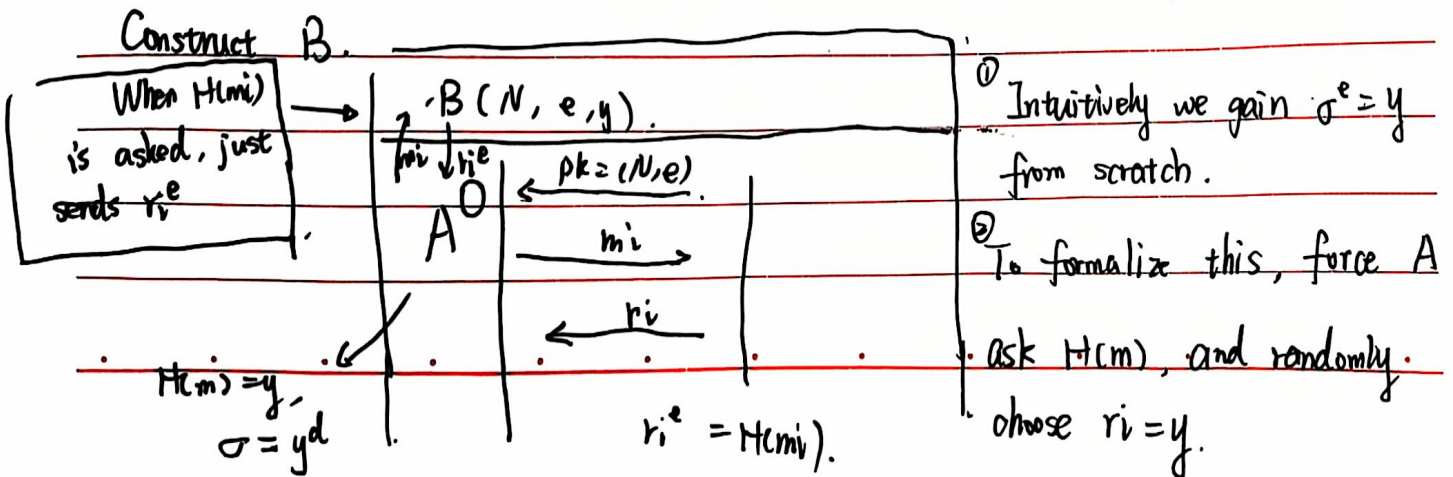 Construct B.
When H(mi)
is asked, just
sends ri^e
B (N, e, y).
mi ri^e
pk = (N, e)
A^O
mi
ri
H(m) = y,
σ = y^d
ri^e = H(mi).
① Intuitively we gain σ^e = y
from scratch.
② To formalize this, force A
ask H(m), and randomly
choose ri = y.